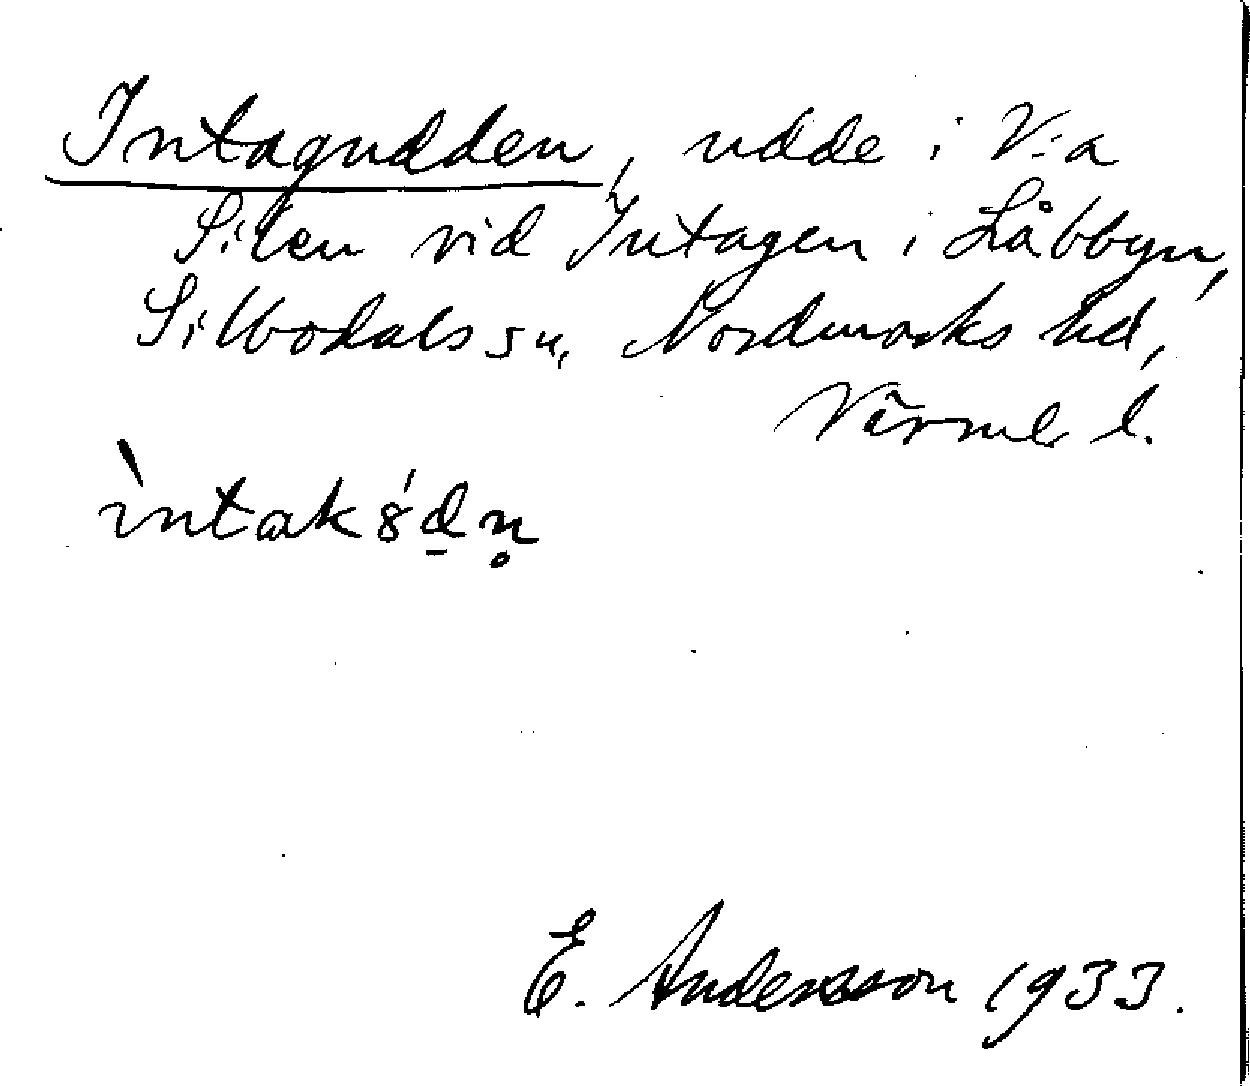 Intagudden, udde i V:a
Silen vid Intagen i Låbbyn,
Silbodals sn, Nordmarks hd,
Värml. l.
ìntak8́d̲n̥
E. Andersson 1933.